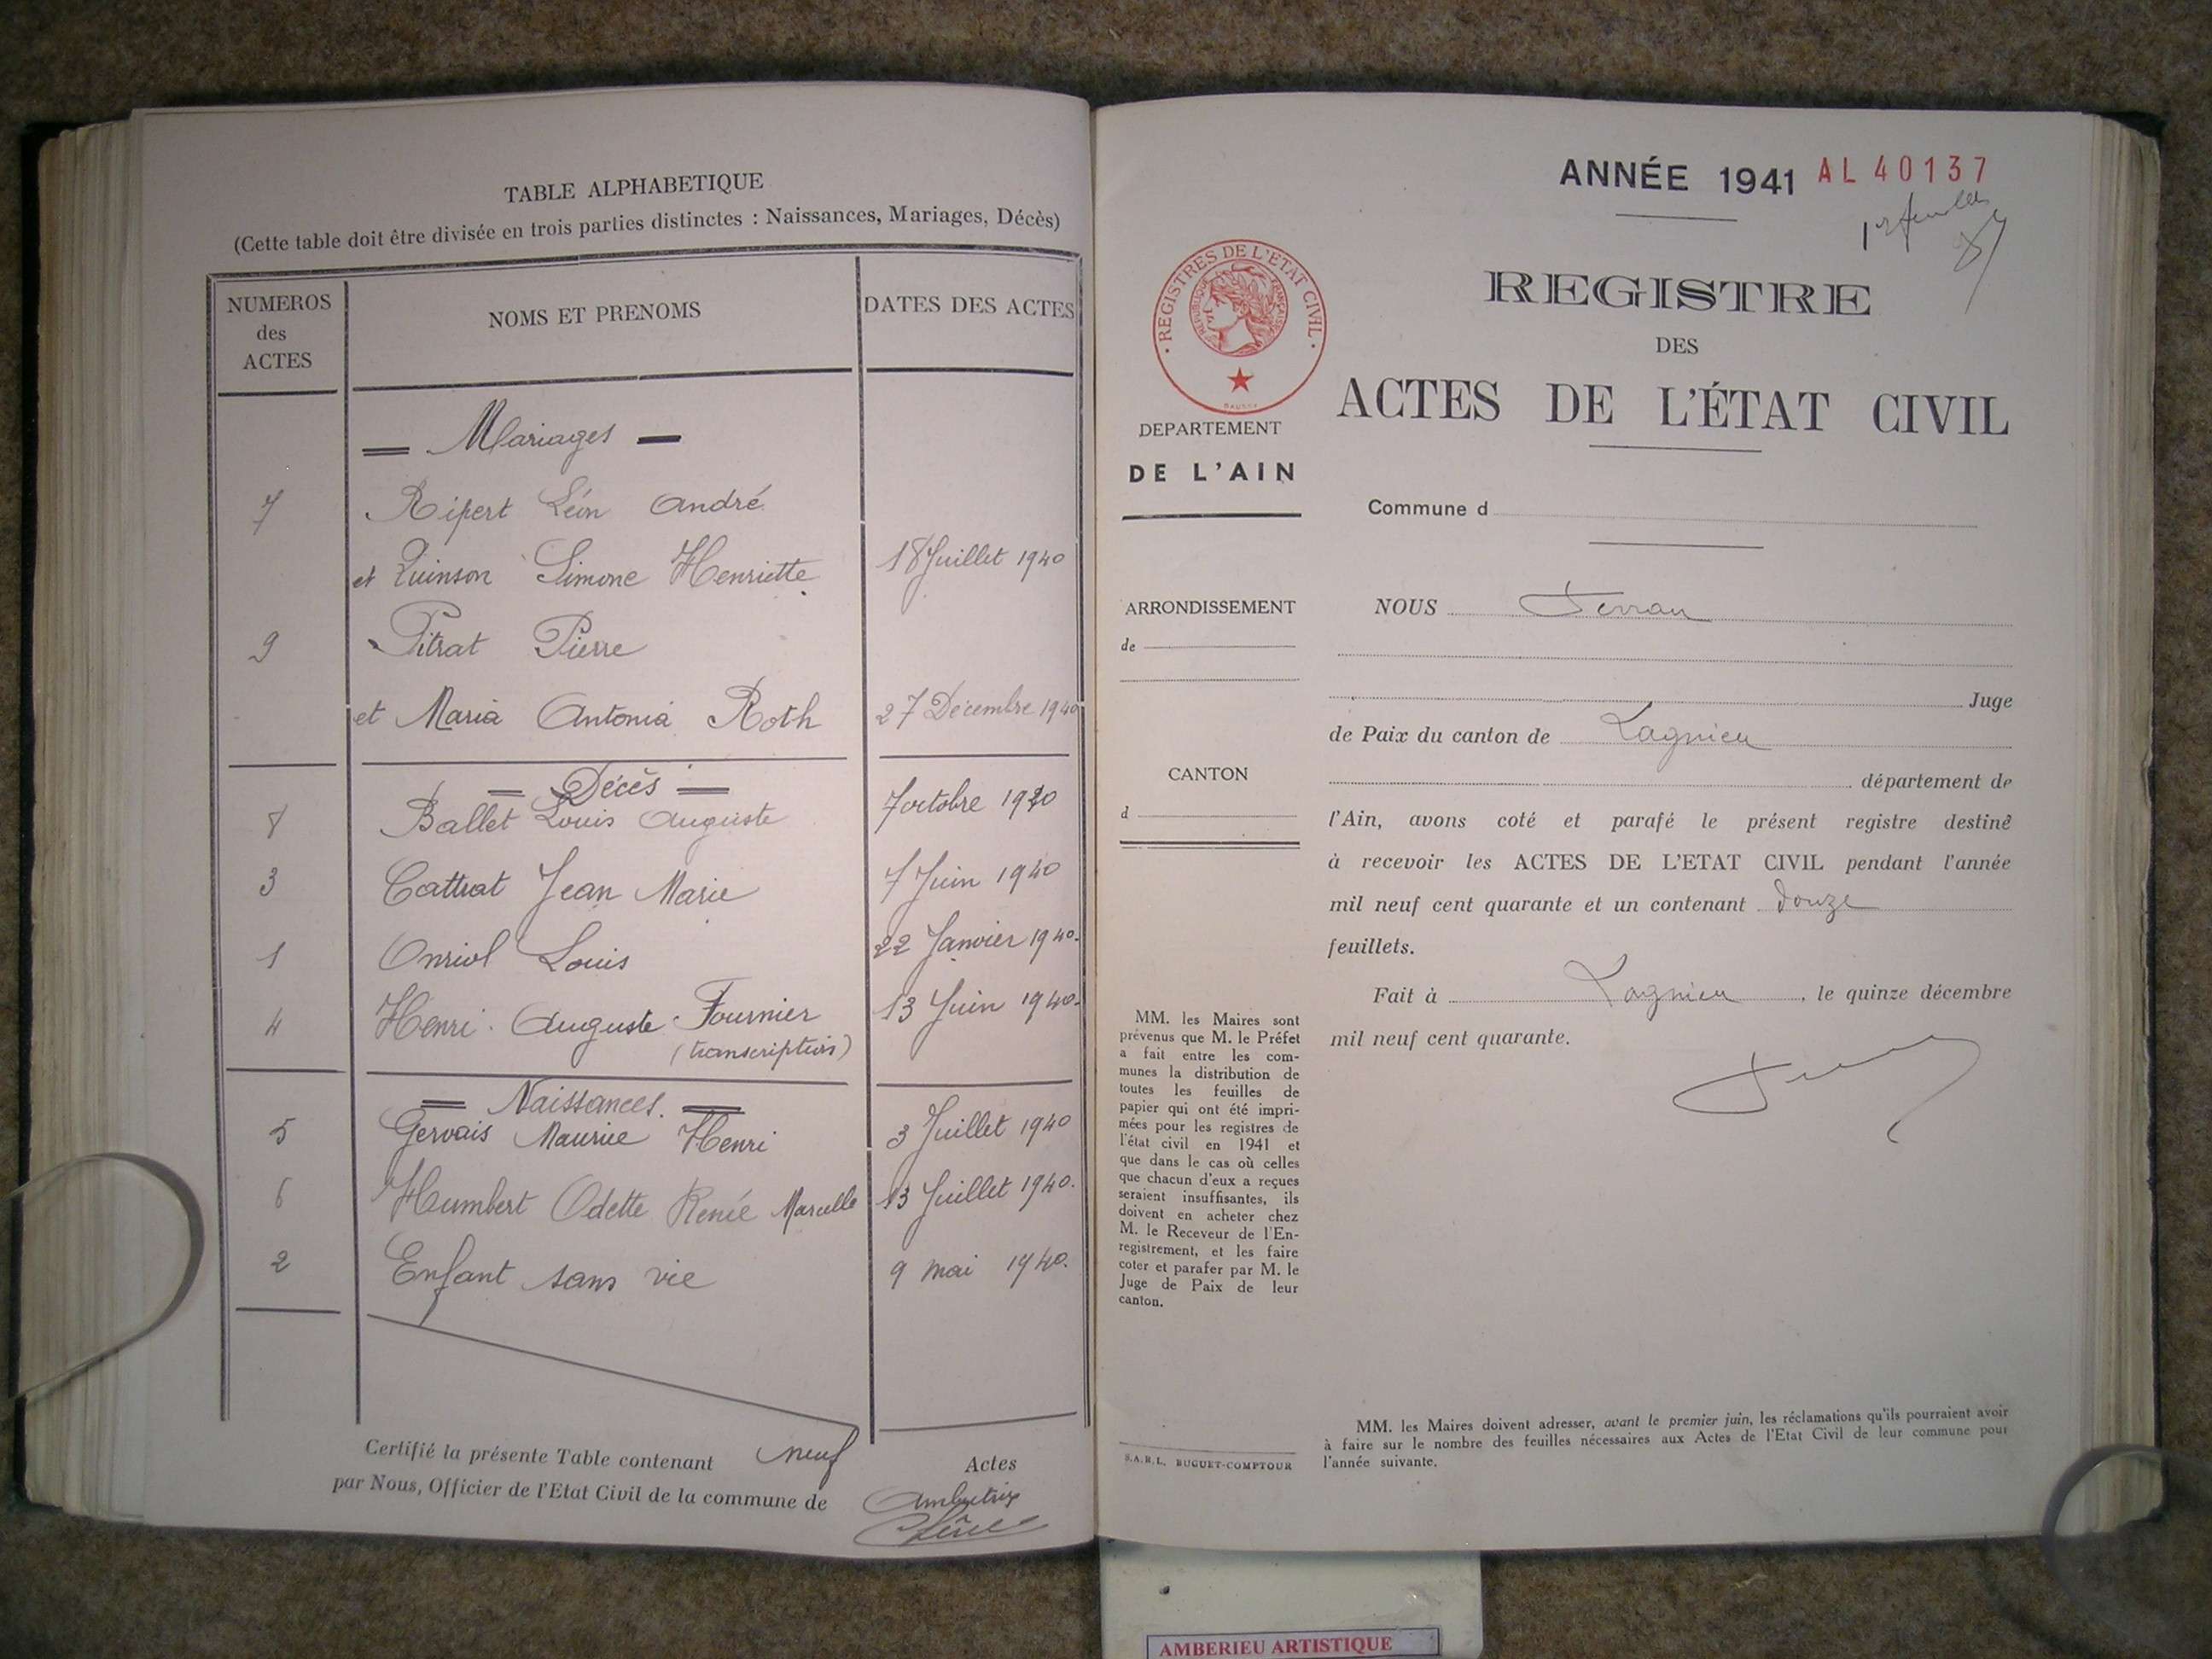 TABLE ALPHABETIQUE
(Cette table doit être divisée en trois parties distinctes : Naissances, Mariages, Décès)
NUMEROS des ACTES
NOMS ET PRENOMS
DATES DES ACTES
Mariages
7 Ripert Léon André
et Quinson Simone Henriette 18 Juillet 1940
9 Pitrat Pierre
et Maria Antonia Roth 27 Décembre 1940
Décès
8 Ballet Louis Auguste 7 octobre 1940
3 Cattrat Jean Marie 7 Juin 1940
1 Onriol Louis 22 Janvier 1940.
4 Henri Auguste Fournier 13 Juin 1940.
(transcription)
Naissances.
5 Gervais Maurice Henri 3 Juillet 1940
6 Humbert Odette Renée Marcelle 13 Juillet 1940.
2 Enfant sans vie 9 mai 1940.
Certifié la présente Table contenant neuf Actes
par Nous, Officier de l'Etat Civil de la commune de Ambutrix
ANNÉE 1941 AL 40137
1er feuillet
REGISTRES DE L'ÉTAT CIVIL
RÉPUBLIQUE FRANÇAISE
REGISTRE
DES
ACTES DE L'ÉTAT CIVIL
DEPARTEMENT
DE L'AIN
ARRONDISSEMENT
de
CANTON
d
MM. les Maires sont
prévenus que M. le Préfet
a fait entre les com-
munes la distribution de
toutes les feuilles de
papier qui ont été impri-
mées pour les registres de
l'état civil en 1941 et
que dans le cas où celles
que chacun d'eux a reçues
seraient insuffisantes, ils
doivent en acheter chez
M. le Receveur de l'En-
registrement, et les faire
coter et parafer par M. le
Juge de Paix de leur
canton.
S.A.R.L. BUGUET-COMPTOUR
Commune d
NOUS
Juge
de Paix du canton de Lagnieu
département de
l'Ain, avons coté et parafé le présent registre destiné
à recevoir les ACTES DE L'ETAT CIVIL pendant l'année
mil neuf cent quarante et un contenant douze
feuillets.
Fait à Lagnieu, le quinze décembre
mil neuf cent quarante.
MM. les Maires doivent adresser, avant le premier juin, les réclamations qu'ils pourraient avoir
à faire sur le nombre des feuilles nécessaires aux Actes de l'Etat Civil de leur commune pour
l'année suivante.
AMBERIEU ARTISTIQUE